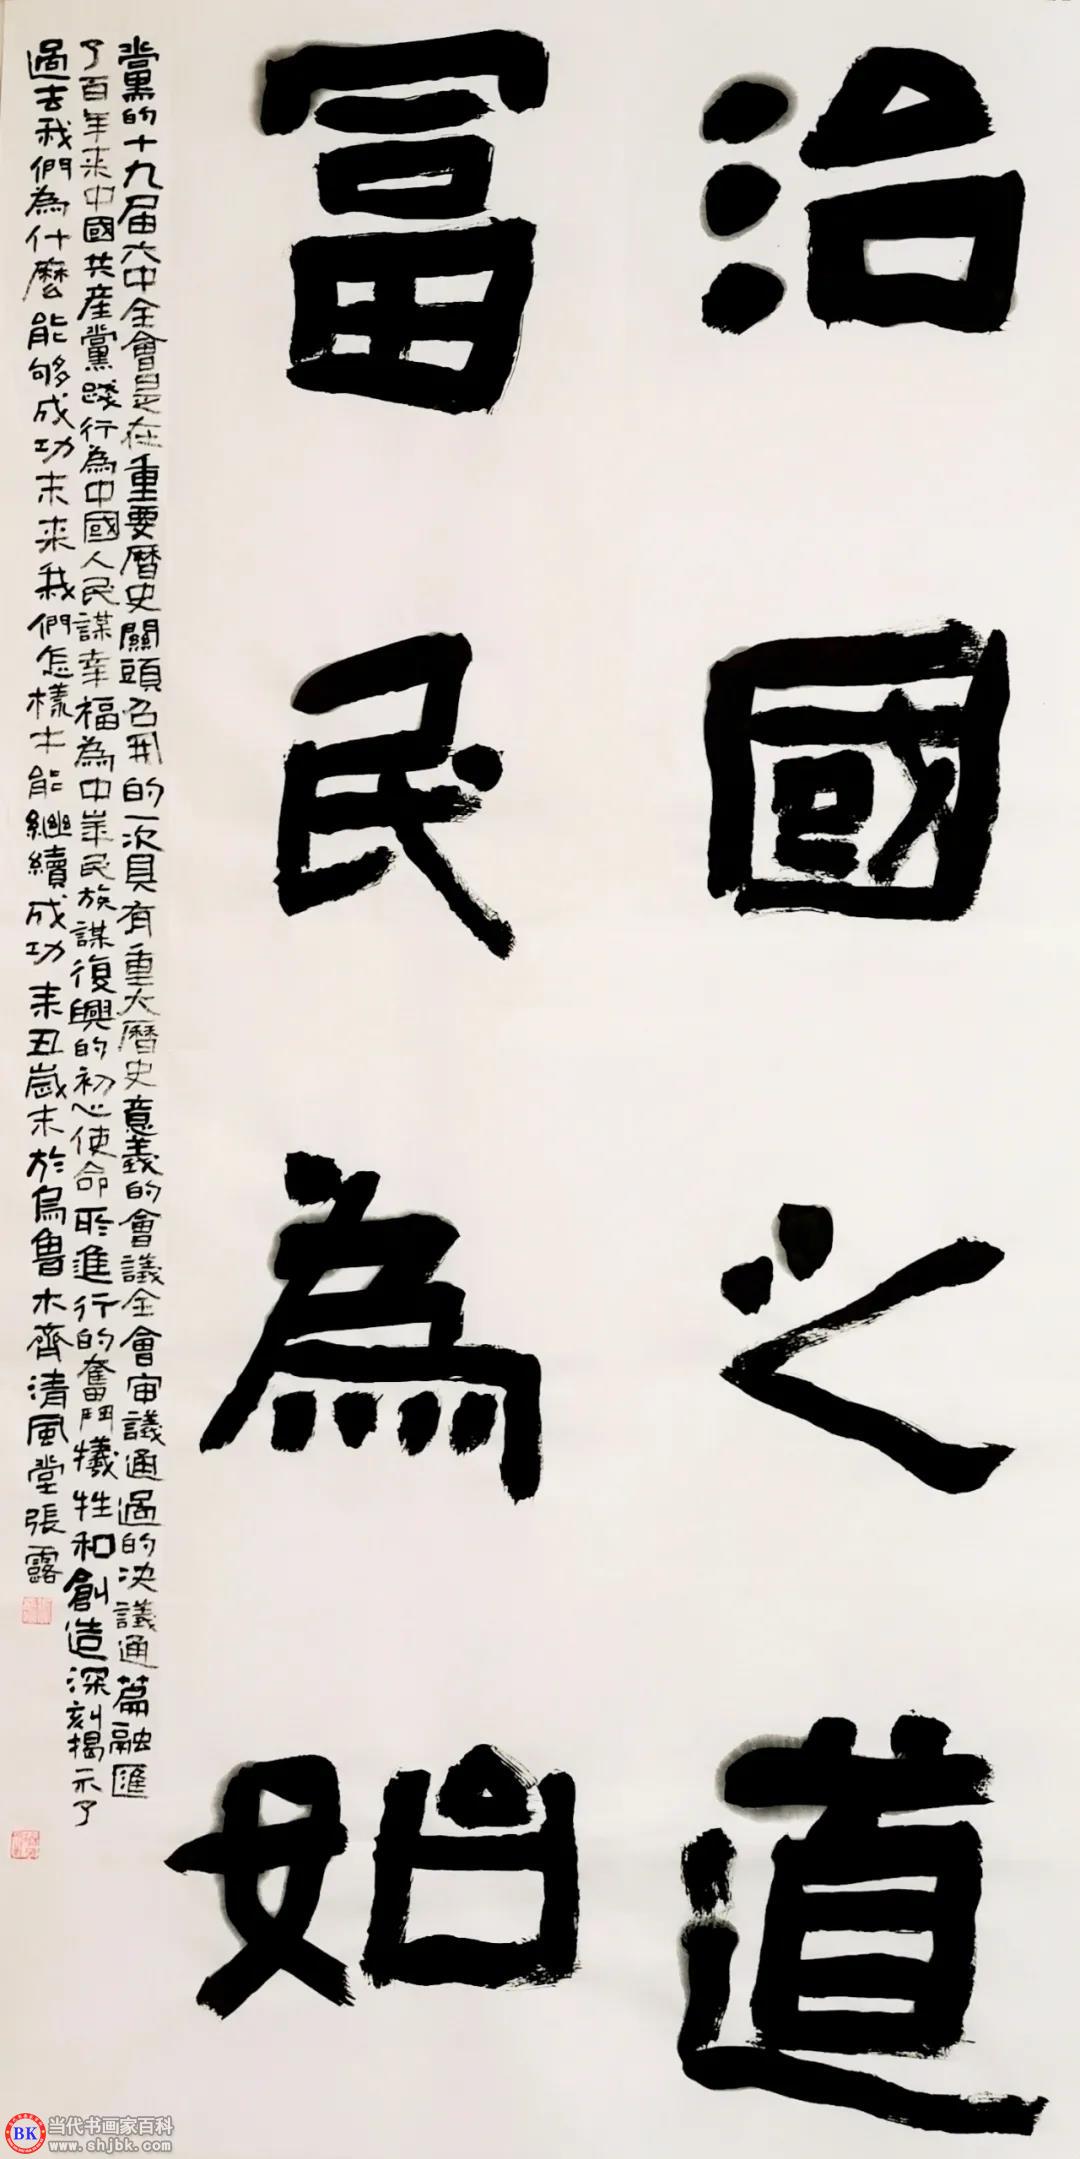 治國之道
富民為始
黨的十九届六中全會是在重要曆史關頭召開的一次具有重大曆史意義的會議全會审議通過的决議通篇融匯
了百年来中國共産黨踐行為中國人民謀幸福為中華民族謀復興的初心使命所進行的奮鬥犧牲和創造深刻揭示了
過去我們為什麼能够成功未来我們怎樣才能継續成功 辛丑歲末於烏魯木齊清風堂張露
BK 当代书画家百科
www.shjbk.com